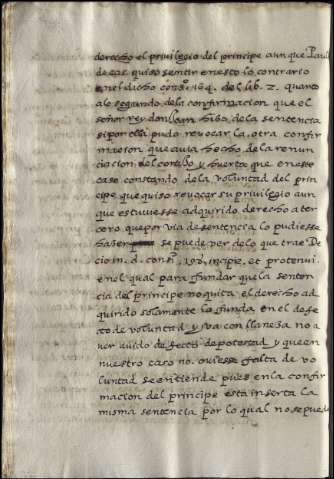 derecho el privilegio del principe aunque Paul
de cas. quiso sentir en esto lo contrario
en el dicho cons.º 164. del lib. 2. quanto
a lo segundo de la confirmacion que el
señor rey don Juan hiço de la sentencia
si por ella pudo revocar la otra confir
macion que avia hecho de la renun
ciacion del cortijo y huerta que en este
caso constando de la voluntad del prin
cipe que quiso revocar su privilegio aun
que estuviesse adquirido derecho a ter
cero que por via de sentencia lo pudiesse
haser se puede per de lo que trae De
cio in. d. cons.º 198. incipe. et pro tenui.
en el qual para fundar que la senten
cia del principe no quita el derecho ad
quirido solamente lo funda en el defe
to de voluntad y va con llaneza no a
ver avido defecto de potestad y que en
nuestro caso no oviesse falta de vo
luntad se entiende pues en la confir
macion del principe esta inserta la
misma sentencia por lo qual no se puede